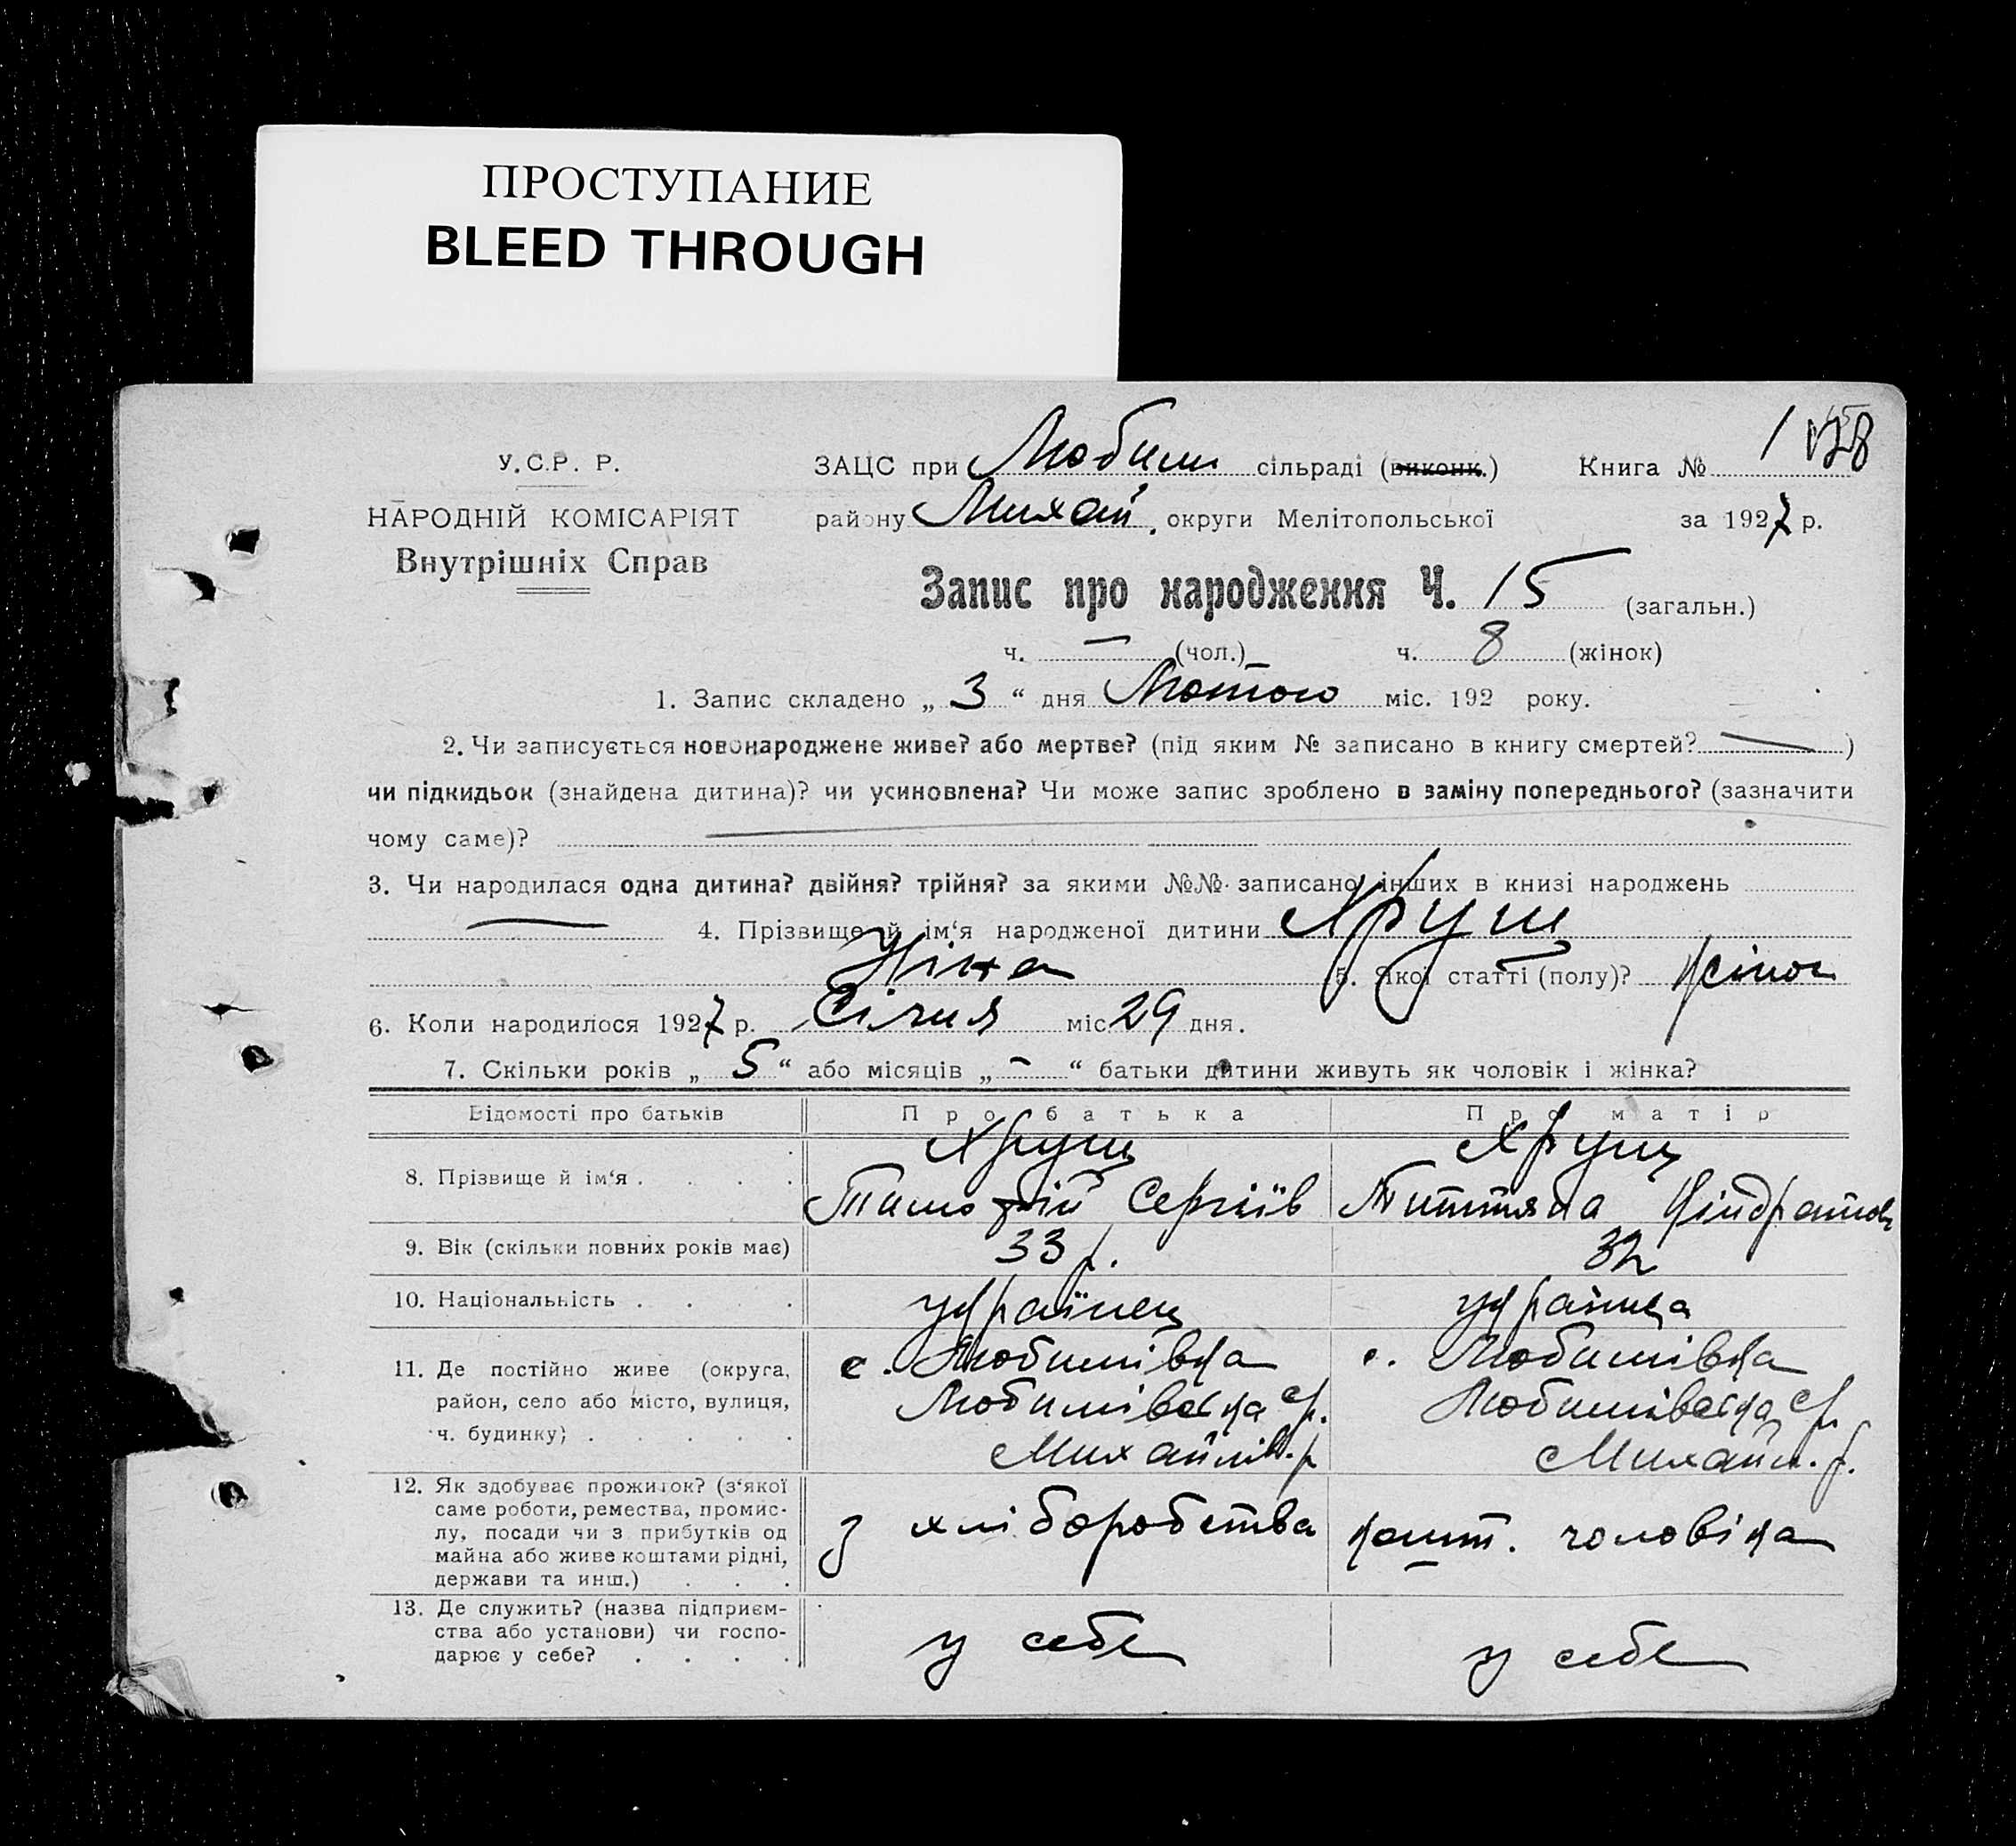 ПРОСТУПАНИЕ
BLEED THROUGH
У.С.Р. Р.
НАРОДНІЙ КОМІСАРІЯТ
Внутрішніх Справ
ЗАЦС при Любим сільраді (виконк.) Книга № 1
району Михай. округи Мелітопольської за 1927 р.
Запис про народження Ч. 15 (загальн.)
ч. — (чол.) ч. 8 (жінок)
1. Запис складено „ 3 “ дня Лютого міс. 192 року.
2. Чи записується новонароджене живе? або мертве? (під яким № записано в книгу смертей? — )
чи підкидьок (знайдена дитина)? чи усиновлена? Чи може запис зроблено в заміну попереднього? (зазначити
чому саме)?
3. Чи народилася одна дитина? двійня? трійня? за якими №№ записано інших в книзі народжень
— 4. Прізвище й ім‘я народженої дитини Хрущ
Ніна 5. Якої статті (полу)? жіноч
6. Коли народилося 1927 р. Січня міс. 29 дня.
7. Скільки років „ 5 “ або місяців „ - “ батьки дитини живуть як чоловік і жінка?
Відомості про батьків Про батька Про матір
8. Прізвище й ім‘я . . . . Хрущ Тимофій Сергіїв Хрущ Киндратов
9. Вік (скільки повних років має) 33 р. 32
10. Національність . . . . українець українца
11. Де постійно живе (округа, с. Любимівка с. Любимівка
район, село або місто, вулиця, Любимівська ср. Любимівська ср.
ч. будинку) . . . . . Михайлів. р Михайл. р.
12. Як здобуває прожиток? (з‘якої
саме роботи, ремества, промис-
лу, посади чи з прибутків од з хліборобства кошт. чоловіка
майна або живе коштами рідні,
держави та инш.) . . .
13. Де служить? (назва підприєм-
ства або установи) чи госпо- у себе у себе
дарює у себе? . . . .